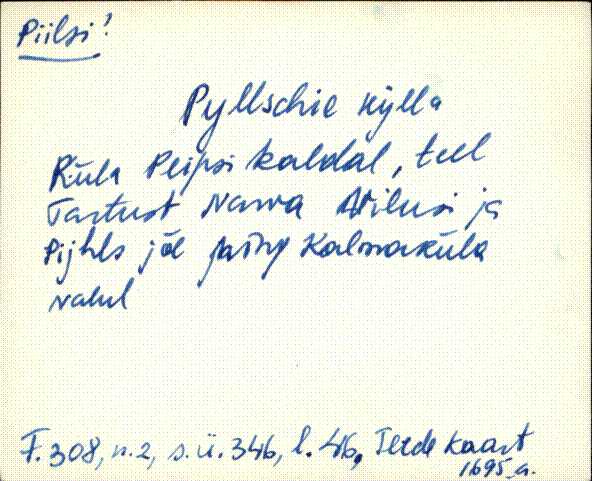 Piilsi!
Pyllschie kylla
Küla Peipsi kaldal, teel
Tartust Narva Avilusi ja
Pijhls jõe ning Kalmaküla
vahel
F. 308, n. 2, s. ü. 346, l. 46, Teede kaart
1695 a.